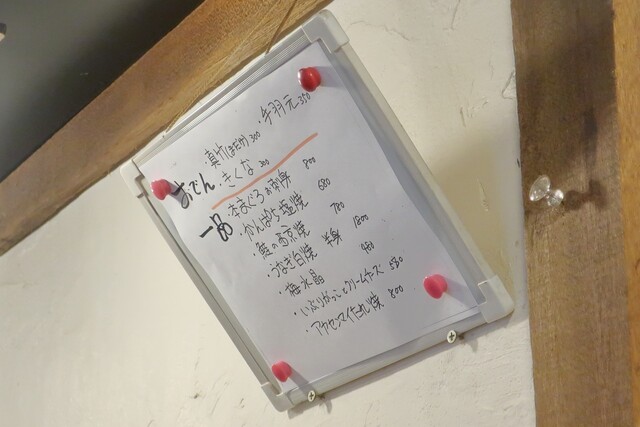 ・手羽元 350
・真竹(まだけ) 300
おでん ・きくな 200
一品 ・本まぐろお刺身 900
・かんぱち塩焼 680
・鮭の西京焼 780
・うなぎ白焼 半身 1800
・梅水晶 480
・いぶりがっことクリームチーズ 580
焼 800